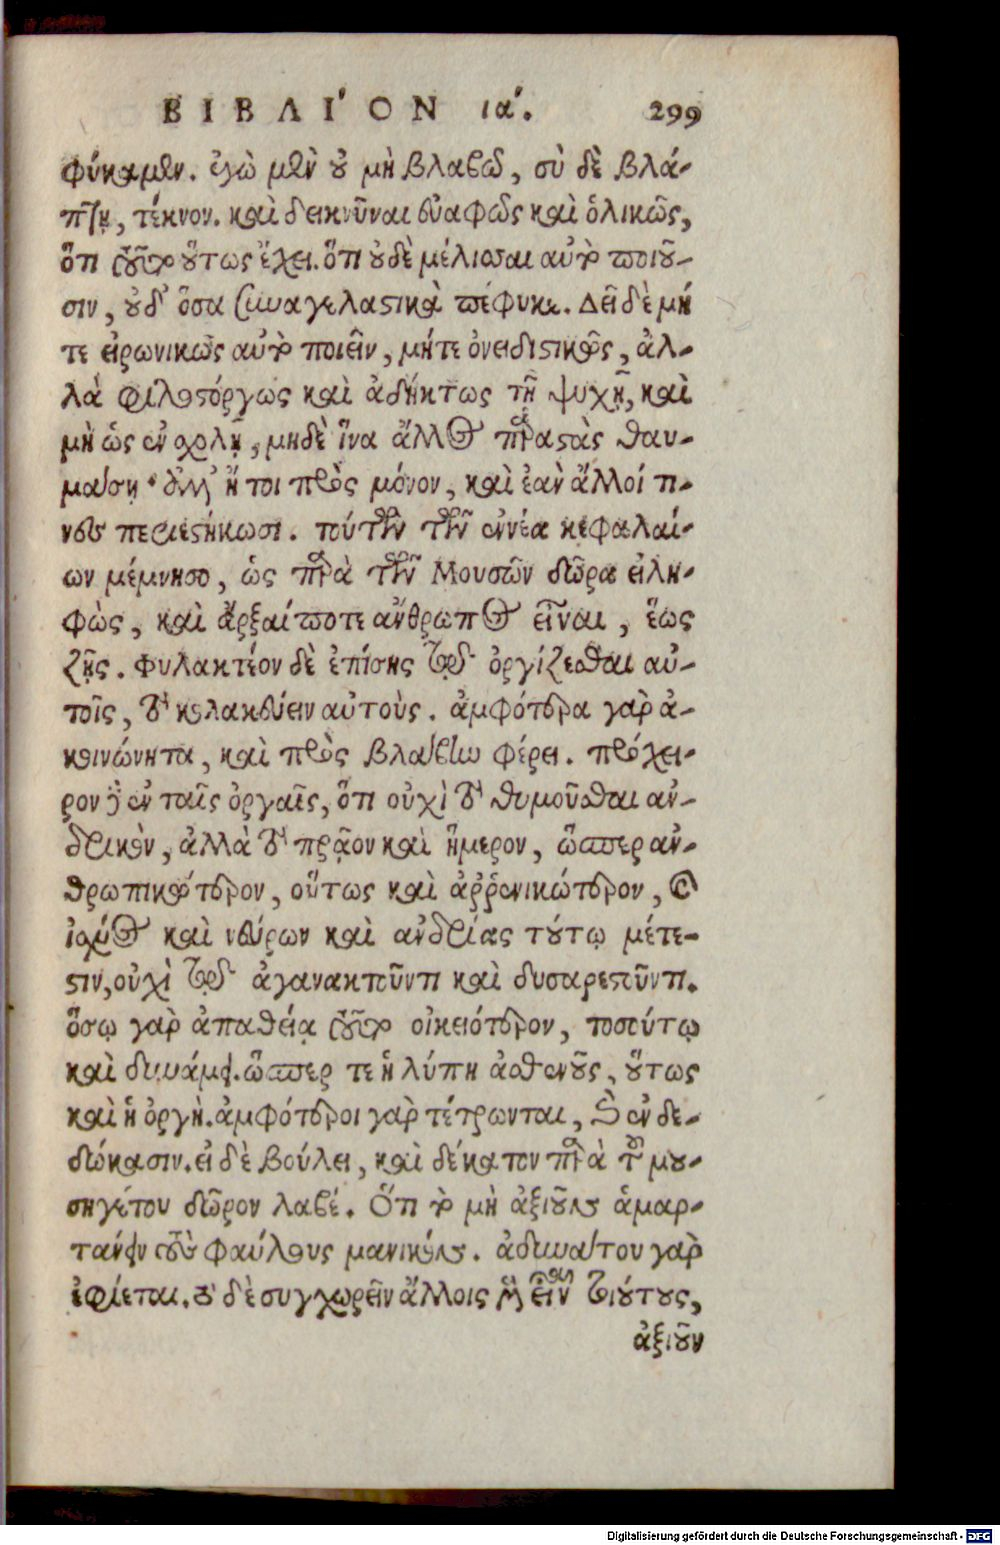 ΒΙΒΛΙ'ΟΝ ια'. 299
φύκαμεν. ἐγὼ μὲν οὐ μὴ βλαβῶ, σὺ δὲ βλά-
πτῃ, τέκνον. καὶ δεικνῦναι εὐαφῶς καὶ ὁλικῶς,
ὅτι τοῦτο οὕτως ἔχει. ὅτι οὐδὲ μέλισσαι αὐτὸ ποιοῦ-
σιν, οὐδ' ὅσα συναγελαστικὰ πέφυκε. Δεῖ δὲ μή
τε εἰρωνικῶς αὐτὸ ποιεῖν, μήτε ὀνειδιστικῶς, ἀλ-
λὰ φιλοστόργως καὶ ἀδήκτως τῇ ψυχῇ, καὶ
μὴ ὡς ἐν σχολῇ, μηδὲ ἵνα ἄλλος παραστὰς θαυ-
μάσῃ· ἀλλ' ἤτοι πρὸς μόνον, καὶ ἐὰν ἄλλοί τι-
νες περιεστήκωσι. τούτων τῶν ἐννέα κεφαλαί-
ων μέμνησο, ὡς παρὰ τῶν Μουσῶν δῶρα εἰλη-
φὼς, καὶ ἄρξαί ποτε ἄνθρωπος εἶναι, ἕως
ζῇς. Φυλακτέον δὲ ἐπίσης τῷ ὀργίζεσθαι αὐ-
τοῖς, τὸ κολακεύειν αὐτούς. ἀμφότερα γὰρ ἀ-
κοινώνητα, καὶ πρὸς βλάβην φέρει. πρόχει-
ρον δὲ ἐν ταῖς ὀργαῖς, ὅτι οὐχὶ τὸ θυμοῦσθαι ἀν-
δρικὸν, ἀλλὰ τὸ πρᾷον καὶ ἥμερον, ὥσπερ ἀν-
θρωπικώτερον, οὕτως καὶ ἀῤῥενικώτερον, καὶ
ἰσχύος καὶ νεύρων καὶ ἀνδρίας τούτῳ μέτε-
στιν, οὐχὶ τῷ ἀγανακτοῦντι καὶ δυσαρεστοῦντι.
ὅσῳ γὰρ ἀπαθείᾳ τοῦτο οἰκειότερον, τοσούτῳ
καὶ δυνάμει. ὥσπερ τε ἡ λύπη ἀσθενοῦς, οὕτως
καὶ ἡ ὀργή. ἀμφότεροι γὰρ τέτρωνται, καὶ ἐνδε-
δώκασιν. εἰ δὲ βούλει, καὶ δέκατον παρὰ τοῦ μου-
σηγέτου δῶρον λαβέ. Ὅτι τὸ μὴ ἀξιοῦν ἁμαρ-
τάνειν τοὺς φαύλους μανικόν. ἀδυνάτου γὰρ
ἐφίεται. τὸ δὲ συγχωρεῖν ἄλλοις μὲν εἶναι τοιούτους,
ἀξιοῦν
Digitalisierung gefördert durch die Deutsche Forschungsgemeinschaft - DFG